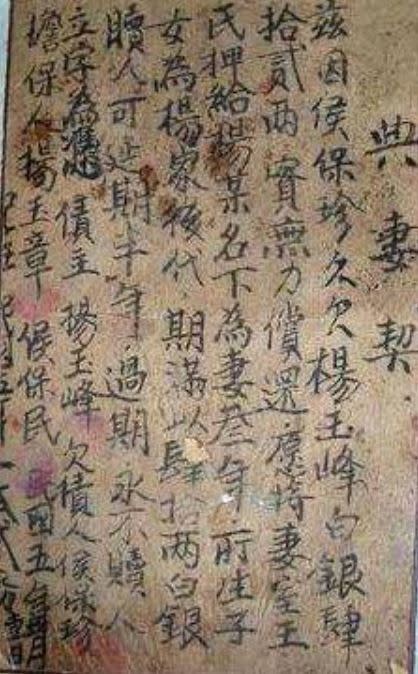 典妻契
茲因侯保珍久欠楊玉峰白銀肆
拾貳两實無力償還應将妻室王
氏押給楊某名下為妻叁年所生子
女為楊家後代期滿以肆拾两白銀
贖人可延期半年過期永不贖人
立字為憑債主楊玉峰欠債人侯保珍
擔保人楊玉章侯保民民國五年